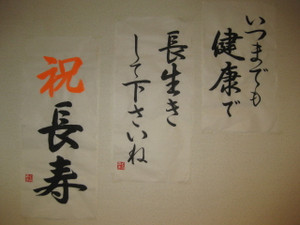 いつまでも
健康で
長生き
して下さいね
祝
長寿